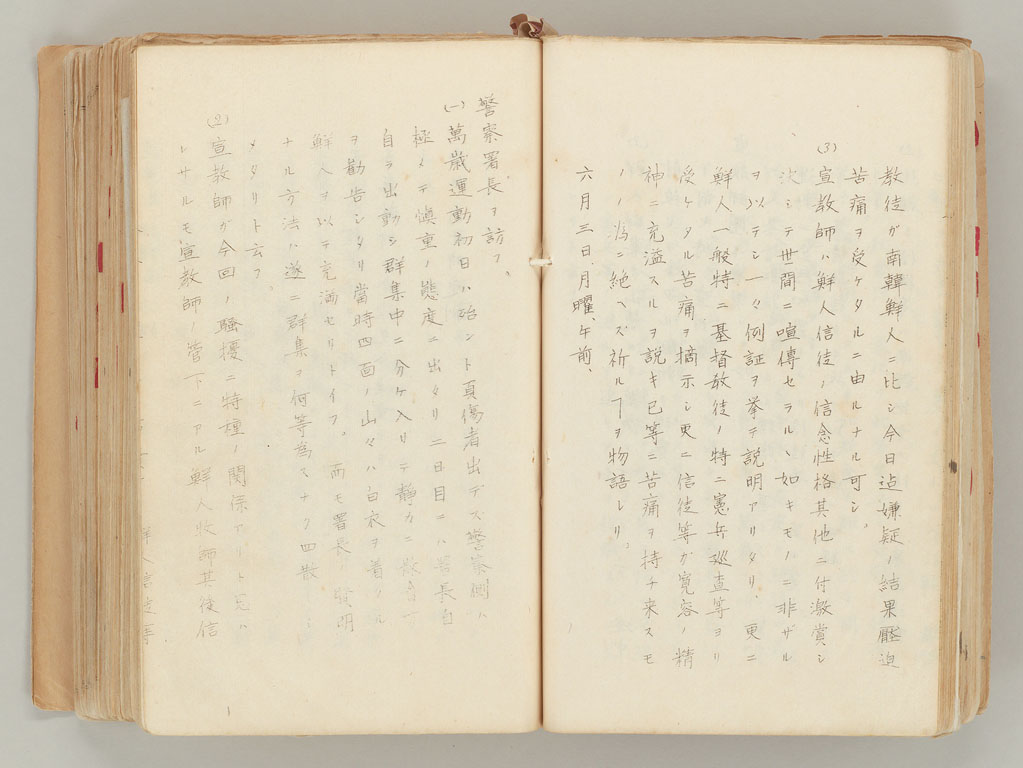 教徒ガ南韓鮮人ニ比シ今日迠嫌疑ノ結果壓迫
苦痛ヲ受ケタルニ由ルナル可シ。
(3) 宣教師ハ鮮人信徒ノ信念性格其他ニ付激賞シ
決シテ世間ニ喧傳セラルヽ如キモノニ非ザル
ヲ以テシ一々例証ヲ挙テ説明アリタリ、更ニ
鮮人一般特ニ基督教徒ノ特ニ憲兵巡査等ヨリ
受ケタル苦痛ヲ摘示シ更ニ信徒等ガ寛容ノ精
神ニ充溢スルヲ説キ已等ニ苦痛ヲ持チ来スモ
ノノ為ニ絶ヘズ祈ルヿヲ物語レリ。
六月三日、月曜、午前、
警察署長ヲ訪フ、
(一) 萬歳運動初日ハ殆ント負傷者出デズ警察側ハ
極メテ愼重ノ態度ニ出タリ二日目ニハ署長自
自ラ出動シ群集中ニ分ケ入リテ静カニ散
ヲ勸告シタリ當時四面ノ山々ハ白衣ヲ着タル
鮮人ヲ以テ充満セリトイフ。而モ署長ノ賢明
ナル方法ハ遂ニ群集ヲ何等為スナク四散シ
メタリト云フ。
(2) 宣教師ガ今回ノ騒擾ニ特種ノ関係アリト
レサルモ宣教師ノ管下ニアル鮮人牧師其徒信
鮮人信徒等